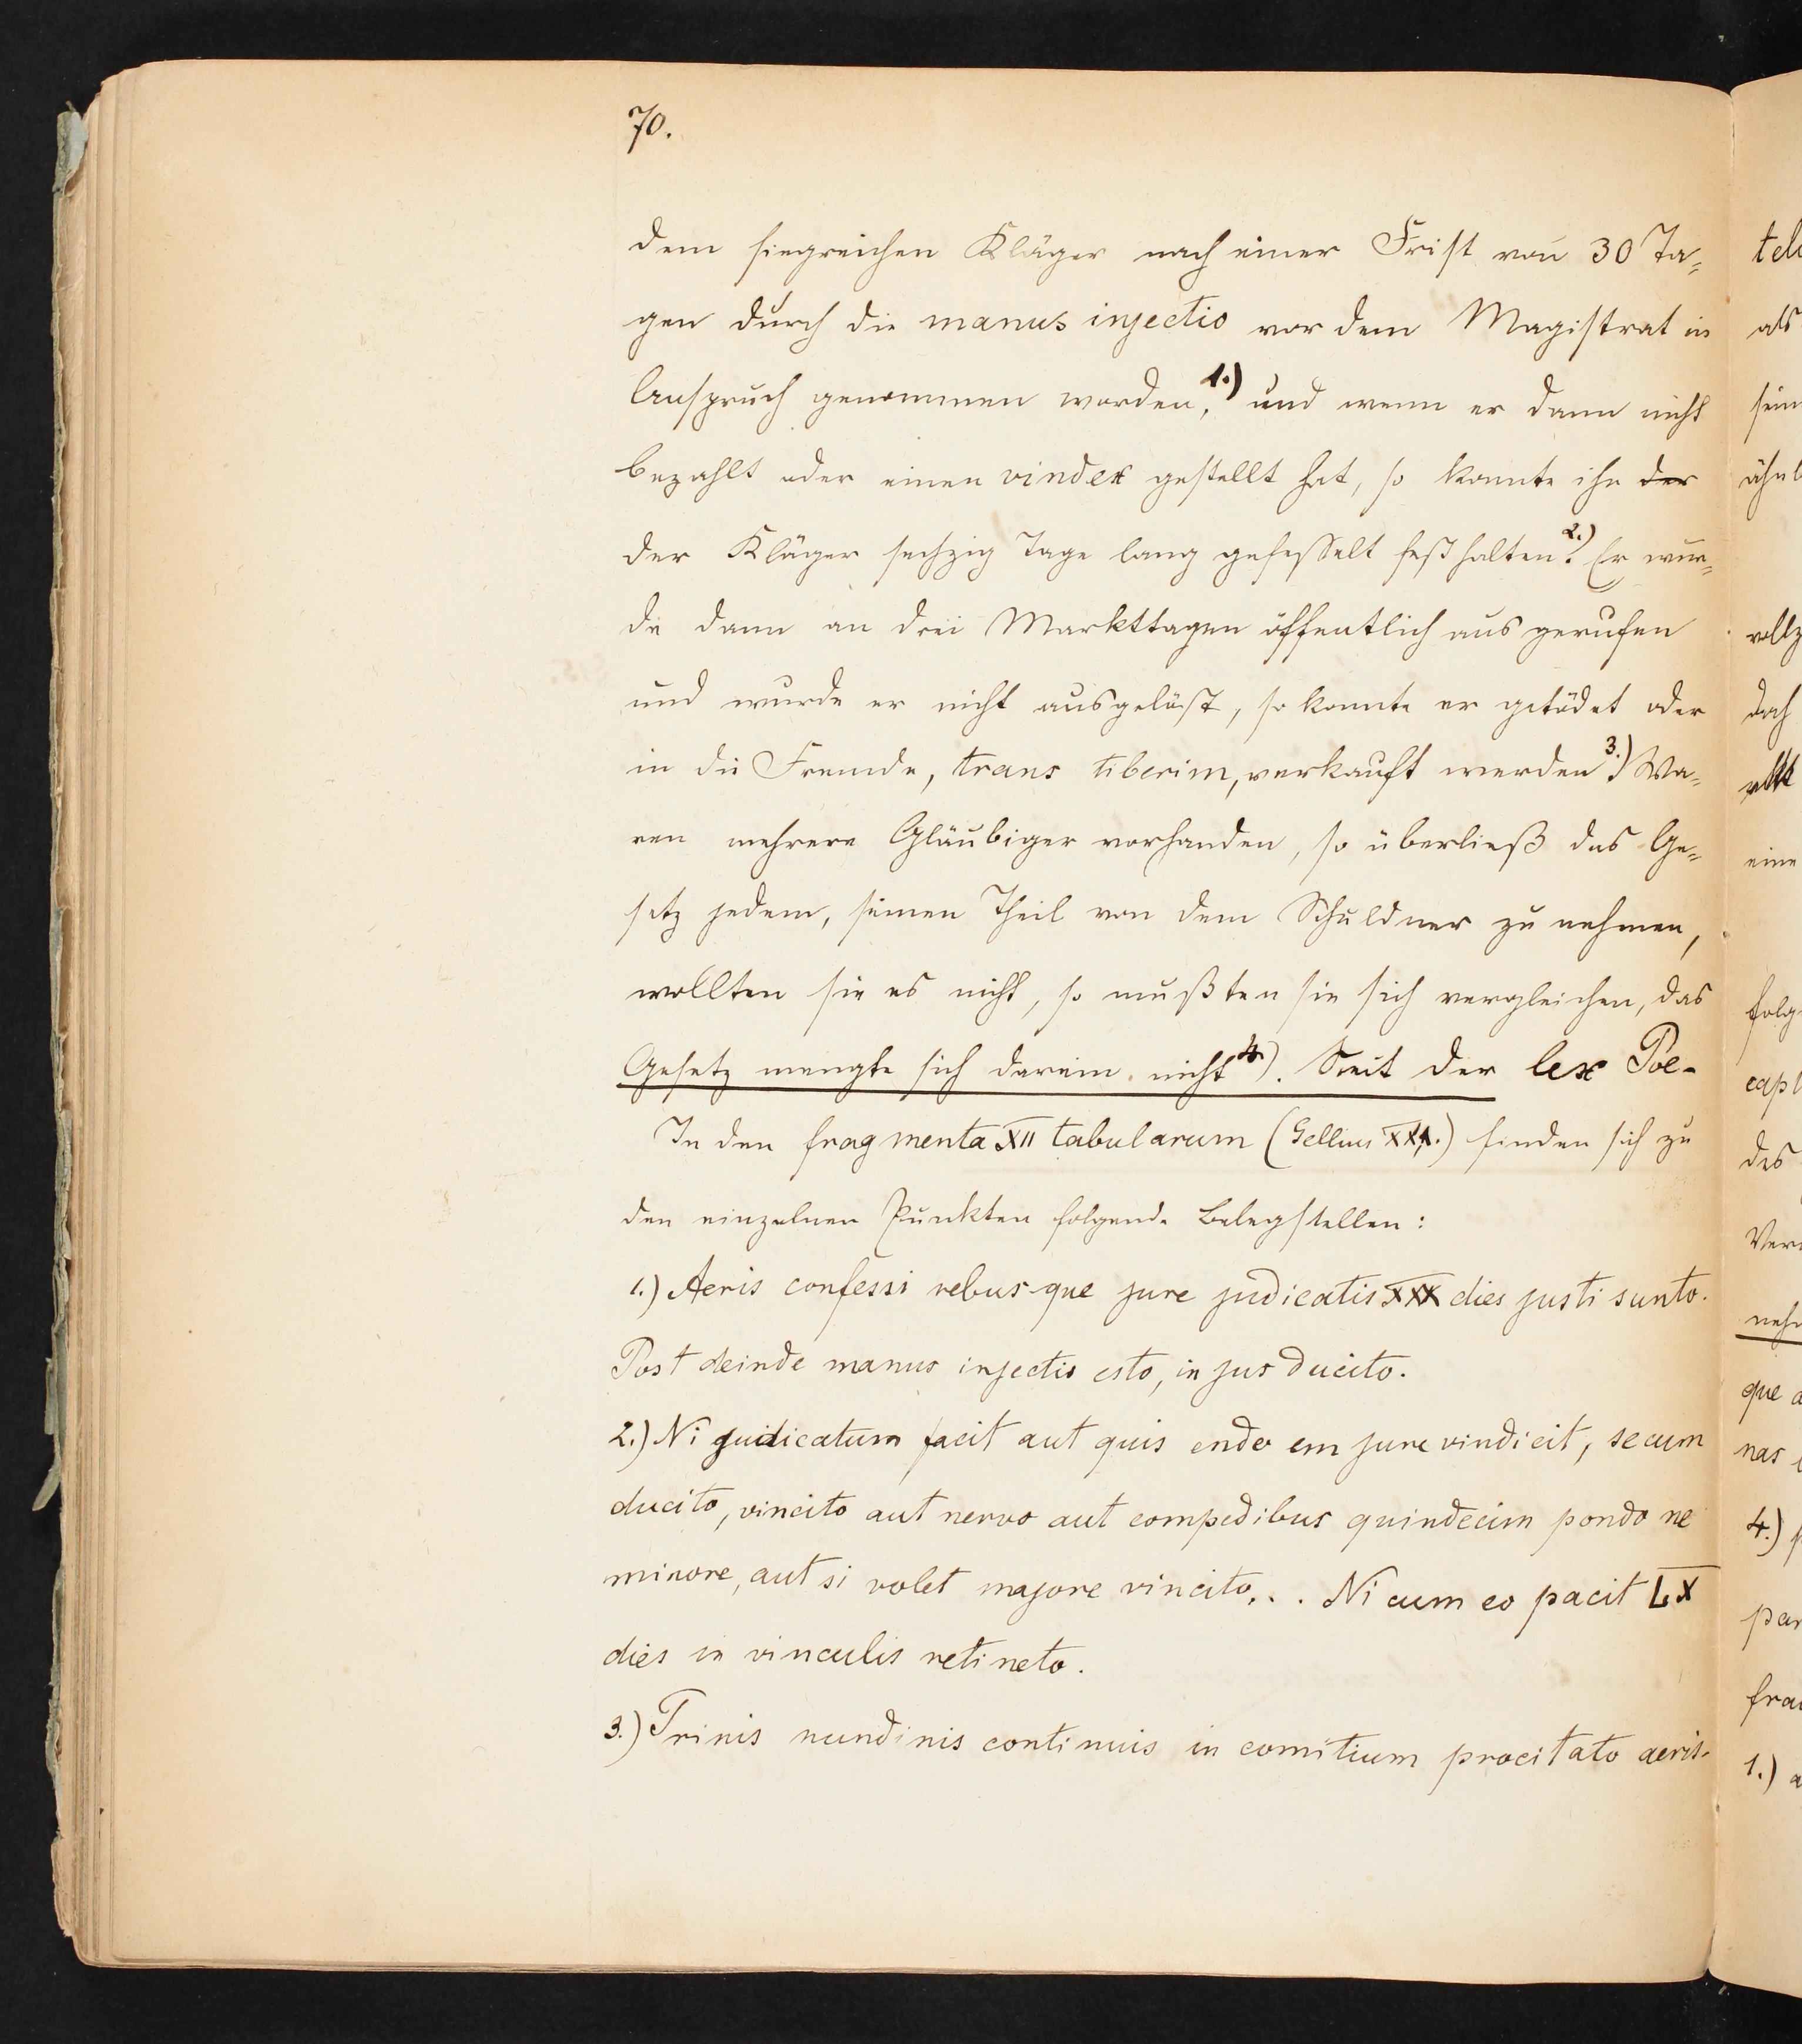 70.
dem siegreichen Kläger nach einer Frist von 30 Ta-
gen durch die manus injectio vor dem Magistrat in
Anspruch genommen worden,1.) und wenn er dann nicht
bezahlt oder einen vindex gestellt hat, so konnte ihn der
der Kläger sechzig Tage lang gefesselt festhalten.2.) Er wur-
de dann an drei Markttagen öffentlich ausgerufen
und wurde er nicht ausgelöst, so konnte er getödet oder
in die Fremde, trans tiberim, verkauft werden.3.) Wa-
ren mehrere Gläubiger vorhanden, so überließ das Ge-
setz jedem, seinen Theil von dem Schuldner zu nehmen,
wollten sie es nicht, so mußten sie sich vergleichen, das
Gesetz mengte sich darein nicht 4.). Seit der lex Poe-
In den fragmenta XII tabularum (Gellius XX,1.) finden sich zu
den einzelnen Punkten folgende Belegstellen:
1.) Aeris confessi rebusque jure judicatis XXX dies justi sunto.
Post deinde manus injectio esto, in jus ducito.
2.) Ni judicatum facit aut quis endo em jure vindicit, secum
ducito, vincito aut nervo aut compedibus quindecim pondo ne
minore, aut si volet majore vincito... Ni cum eo pacit LX
dies in vinculis retineto.
3.) Trinis nundinis continuis in comitium procitato aeris-
als
sein
ähnl
vollz
doch
eine
folg
capi
des
Vers
neh
que a
nas
4.) p
par
frau
1.) a